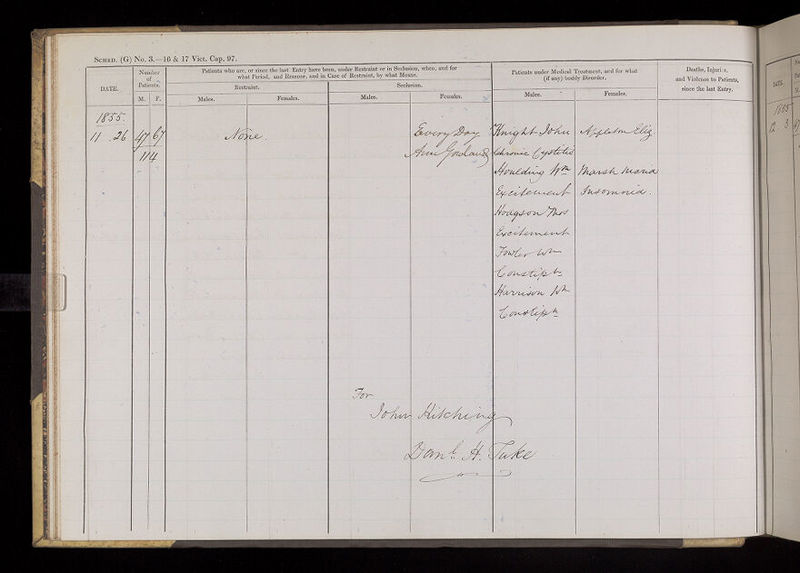 SCHED. (G) No. 3.—16 & 17 Vict. Cap. 97.
DATE.
Number of Patients.
M. F.
Patients who are, or since the last Entry have been, under Restraint or in Seclusion, when, and for
what Period, and Reasons, and in Case of Restraint, by what Means.
Restraint.
Seclusion.
Males.
Females.
Males.
Females.
Patients under Medical Treatment, and for what
(if any) bodily Disorder.
Males.
Females.
Deaths, Injuries,
and Violence to Patients,
since the last Entry.
1855.
11 . 26
47 67
114
None
Every Day
Ann
Knight John
Chronic Cystitis
Houlding Wm
Excitement
Hodgson Thos
Excitement
Fowler Wm
Constipn
Harrison Wm
Constipn
Appleton Eliz
Marsh Maria
Insomnia.
For
John Kitching
Danl. H. Tuke
DATE.
1855
12 3